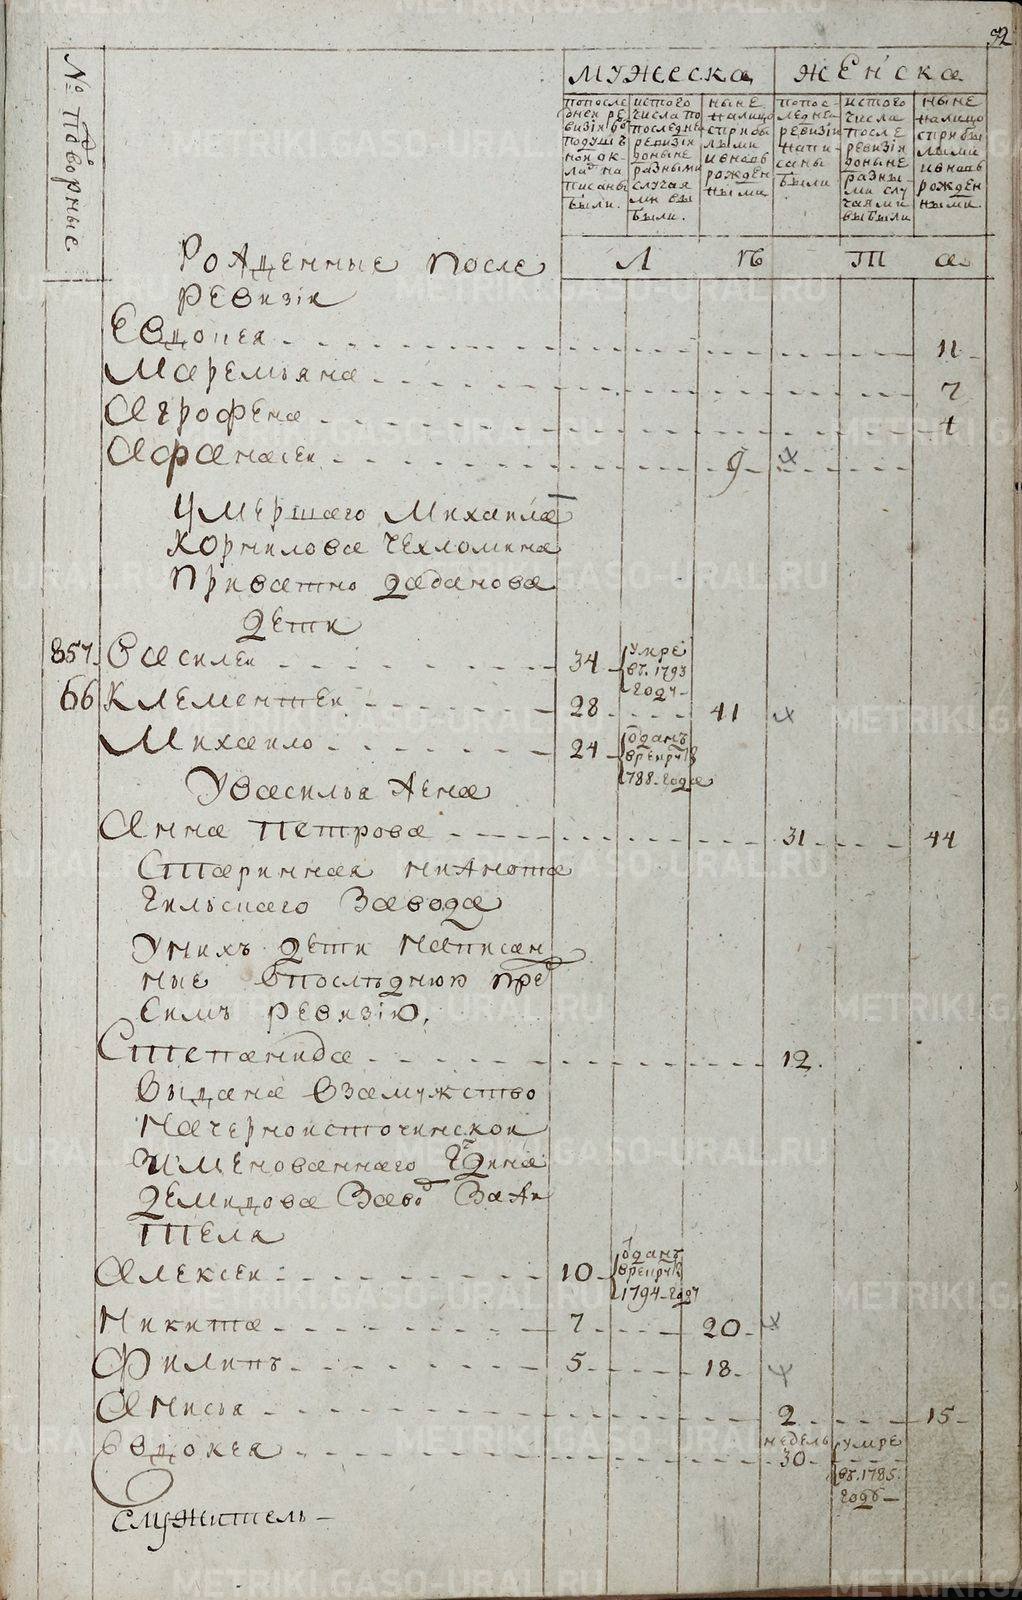 92
№ подворные
мужеска
женска
попосле
дней ре
визiи въ
подушъ
ной ок-
ладъ на
писаны
были.
истого
числа по
последне
ревизiи
доныне
разными
случая
ми вы
были.
ныне
налицо
спри бы
лыми
ивновь
рожден
ными
попос-
ледней
ревизiи
напи-
саны
были
истого
числа
после
ревизiи
доныне
разны-
ми слу
чаями
выбыли
ныне
налицо
спри бы
лыми
ивновь
рожден
ными.
Л ѣ т а
Рожденные после
ревизiи
Евдокея 11
Маремьяна 7
Агрофена 4
Афанасеи 9
Умершаго Михаила
Корнилова Чехломина
Приватно Заданова
дети
857. Василеи 34 умре
въ. 1793
году
66 Клементеи 28 41
Михаило 24 Одданъ
врекруты
1788-года
Увасилья жена
Анна Петрова 31 44
Старинная нижнота
гильскаго Завода
Унихъ дети написан
ные впоследнюю пред
симъ ревизiю.
Степанида 12.
выдана взамужство
Начерноисточинской
имѣнованнаго Гдина
Демидова Завод Зажи
теля
Алексеи 10 Одданъ
врекруты
1794-году
Никита 7 20
Филипъ 5 18
Анисья 2 15
Овдокея недель
30 умре
въ. 1785.
годъ
служитель
METRIKI.GASO-URAL.RU